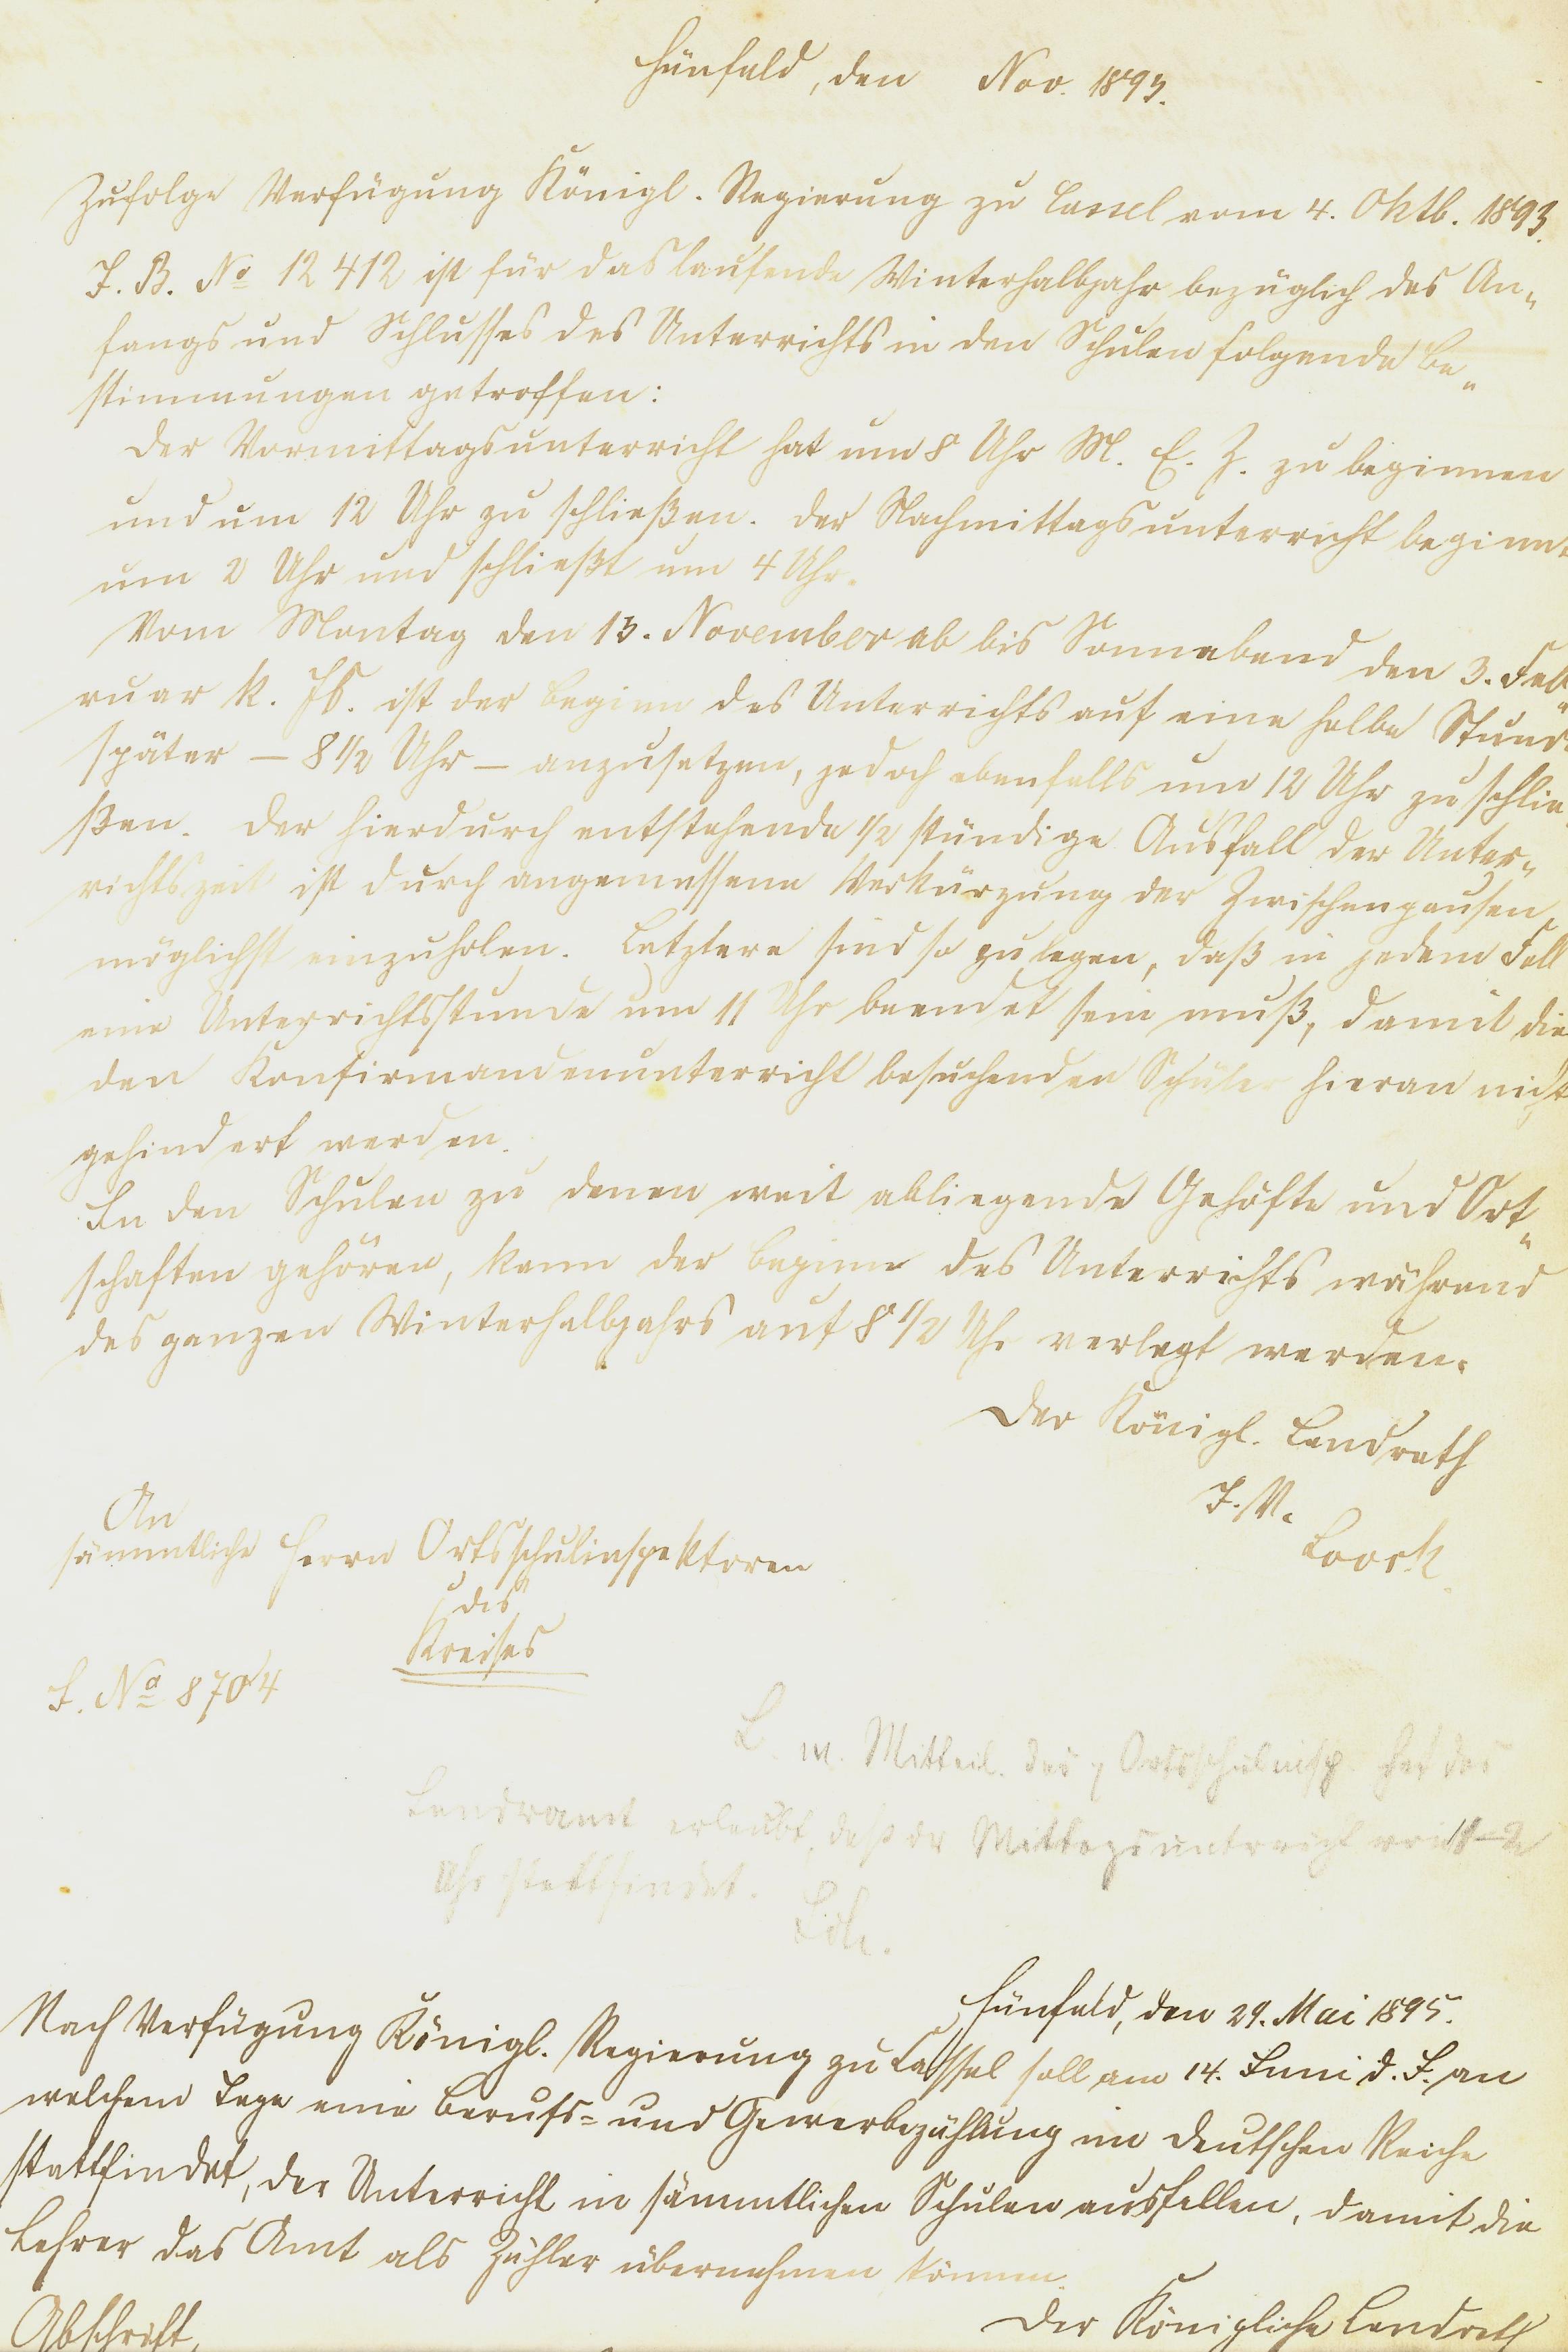 Hünfeld, den Nov. 1893.
Zufolge Verfügung Königl. Regierung zu Cassel vom 4. Oktb. 1893.
J. B. No 12 412 ist für das laufende Winterhalbjahr bezüglich des An„
fangs und Schlusses des Unterrichts in den Schulen folgende Be„
stimmungen getroffen:
Der Vormittagsunterricht hat um 8 Uhr M. E. Z. zu beginnen
und um 12 Uhr zu schließen. Der Nachmittagsunterricht beginnt
um 2 Uhr und schließt um 4 Uhr.
Vom Montag den 13. November ab bis Sonnabend den 3. Feb„
ruar k. Js. ist der Beginn des Unterrichts auf eine halbe Stunde
später — 8 1/2 Uhr — anzusetzen, jedoch ebenfalls um 12 Uhr zu schlie
ßen. Der hierdurch entstehende 1/2 stündige Ausfall der Unter„
richtszeit ist durch angemessene Verkürzung der Zwischenpausen
möglichst einzuholen. Letztere sind so zu legen, daß in jedem Fall
eine Unterrichtsstunde um 11 Uhr beendet sein muß, damit die
den Konfirmandenunterricht besuchenden Schüler hieran nicht
gehindert werden.
In den Schulen zu denen weit abliegende Gehöfte und Ort„
schaften gehören, kann der Beginn des Unterrichts während
des ganzen Winterhalbjahrs auf 8 1/2 Uhr verlegt werden.
Der Königl. Landrath
J. V.
An
sämmtliche Herrn Ortsschulinspektoren
des
Kreises
J. No 8704
L. m. Mitteil. des Ortsschulinsp. hat das
Landramt erlaubt, daß der Mittagsunterricht von
Uhr stattfindet.
Hünfeld, den 29. Mai 1895.
Nach Verfügung Königl. Regierung zu Cassel soll am 14. Juni d. J. an
welchem Tage eine Berufs= und Gewerbezählung im deutschen Reiche
stattfindet, der Unterricht in sämmtlichen Schulen ausfallen, damit die
Lehrer das Amt als Zähler übernehmen können.
Der Königliche Landrath
Abschrift,